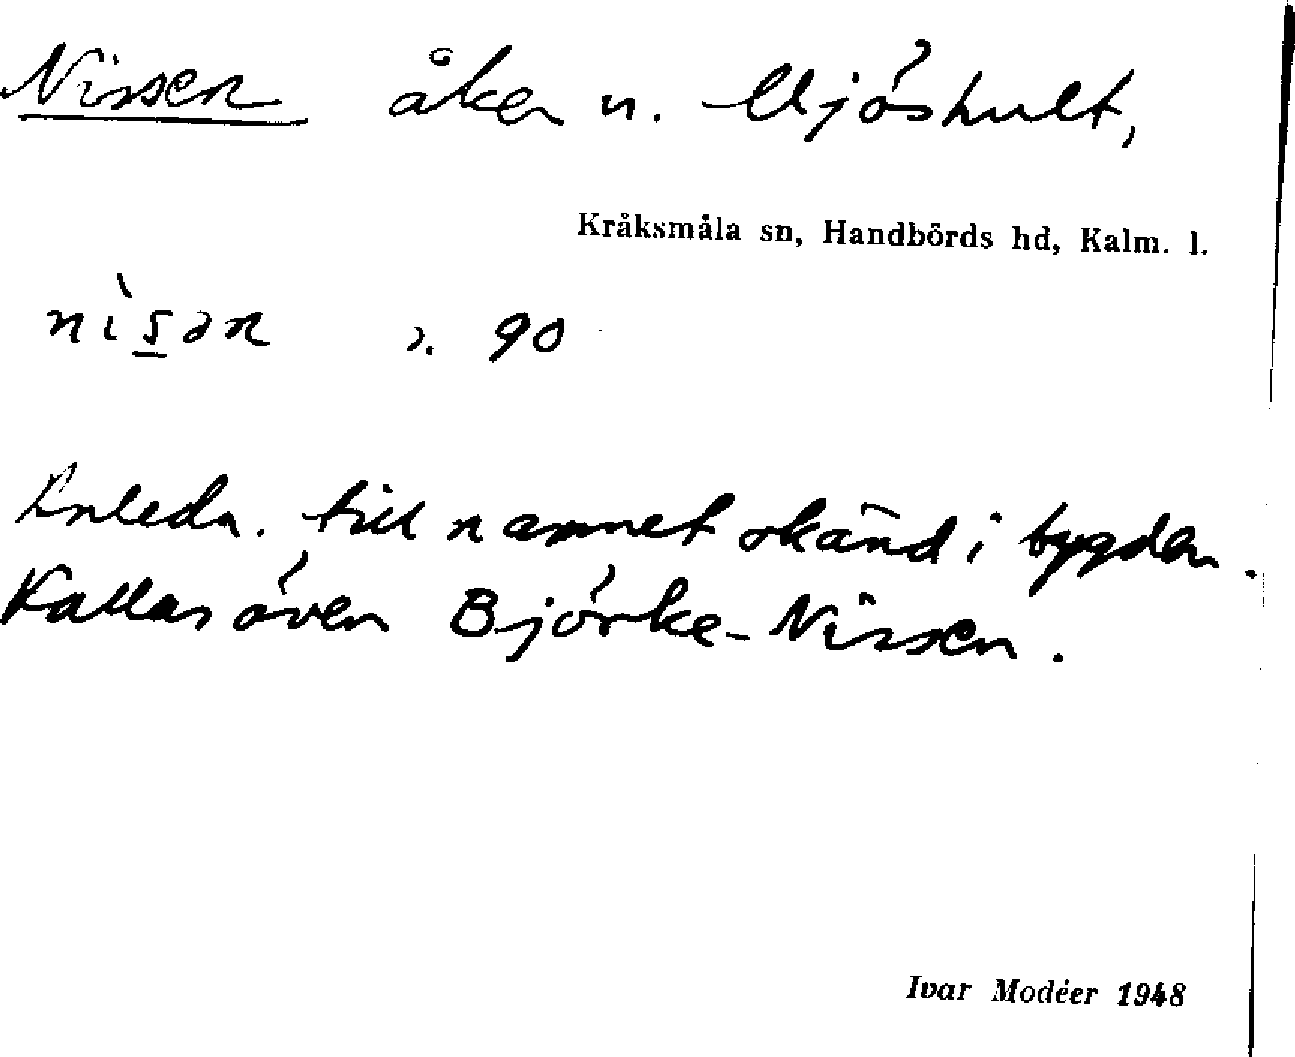 Nissen åker n. Mjöshult,
Kråksmåla sn, Handbörds hd, Kalm. l.
nìsən s. 90
Anledn. till namnet okänd i bygden.
Kallas även Björke-Nissen.
Ivar Modéer 1948